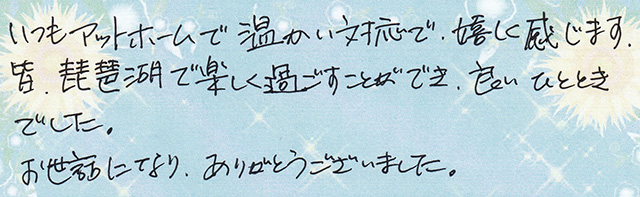 いつもアットホームで温かい対応で、嬉しく感じます。
皆、琵琶湖で楽しく過ごすことができ、良いひととき
でした。
お世話になり、ありがとうございました。